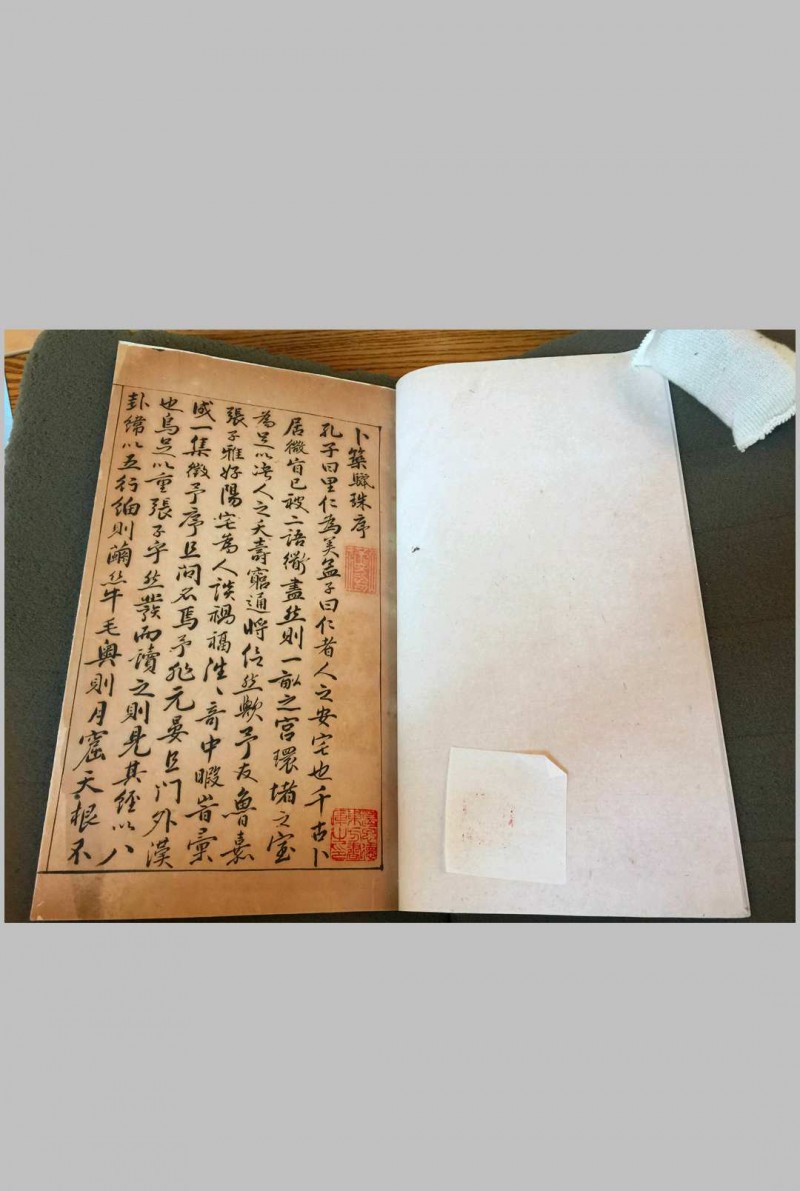 卜築驪珠序
孔子曰里仁為美孟子曰仁者人之安宅也千古卜
居徽旨已被二語衟盡然則一畝之宮環堵之室
為足以决人之夭壽窮通將信然歟予友魯嘉
張子雅好陽宅為人談禍福往〻奇中暇嘗彙
成一集徵予序且問名焉予非元晏且門外漢
也烏足以重張子乎然發而讀之則見其經以八
卦緯以五行細則繭絲牛毛奧則月窟天根不